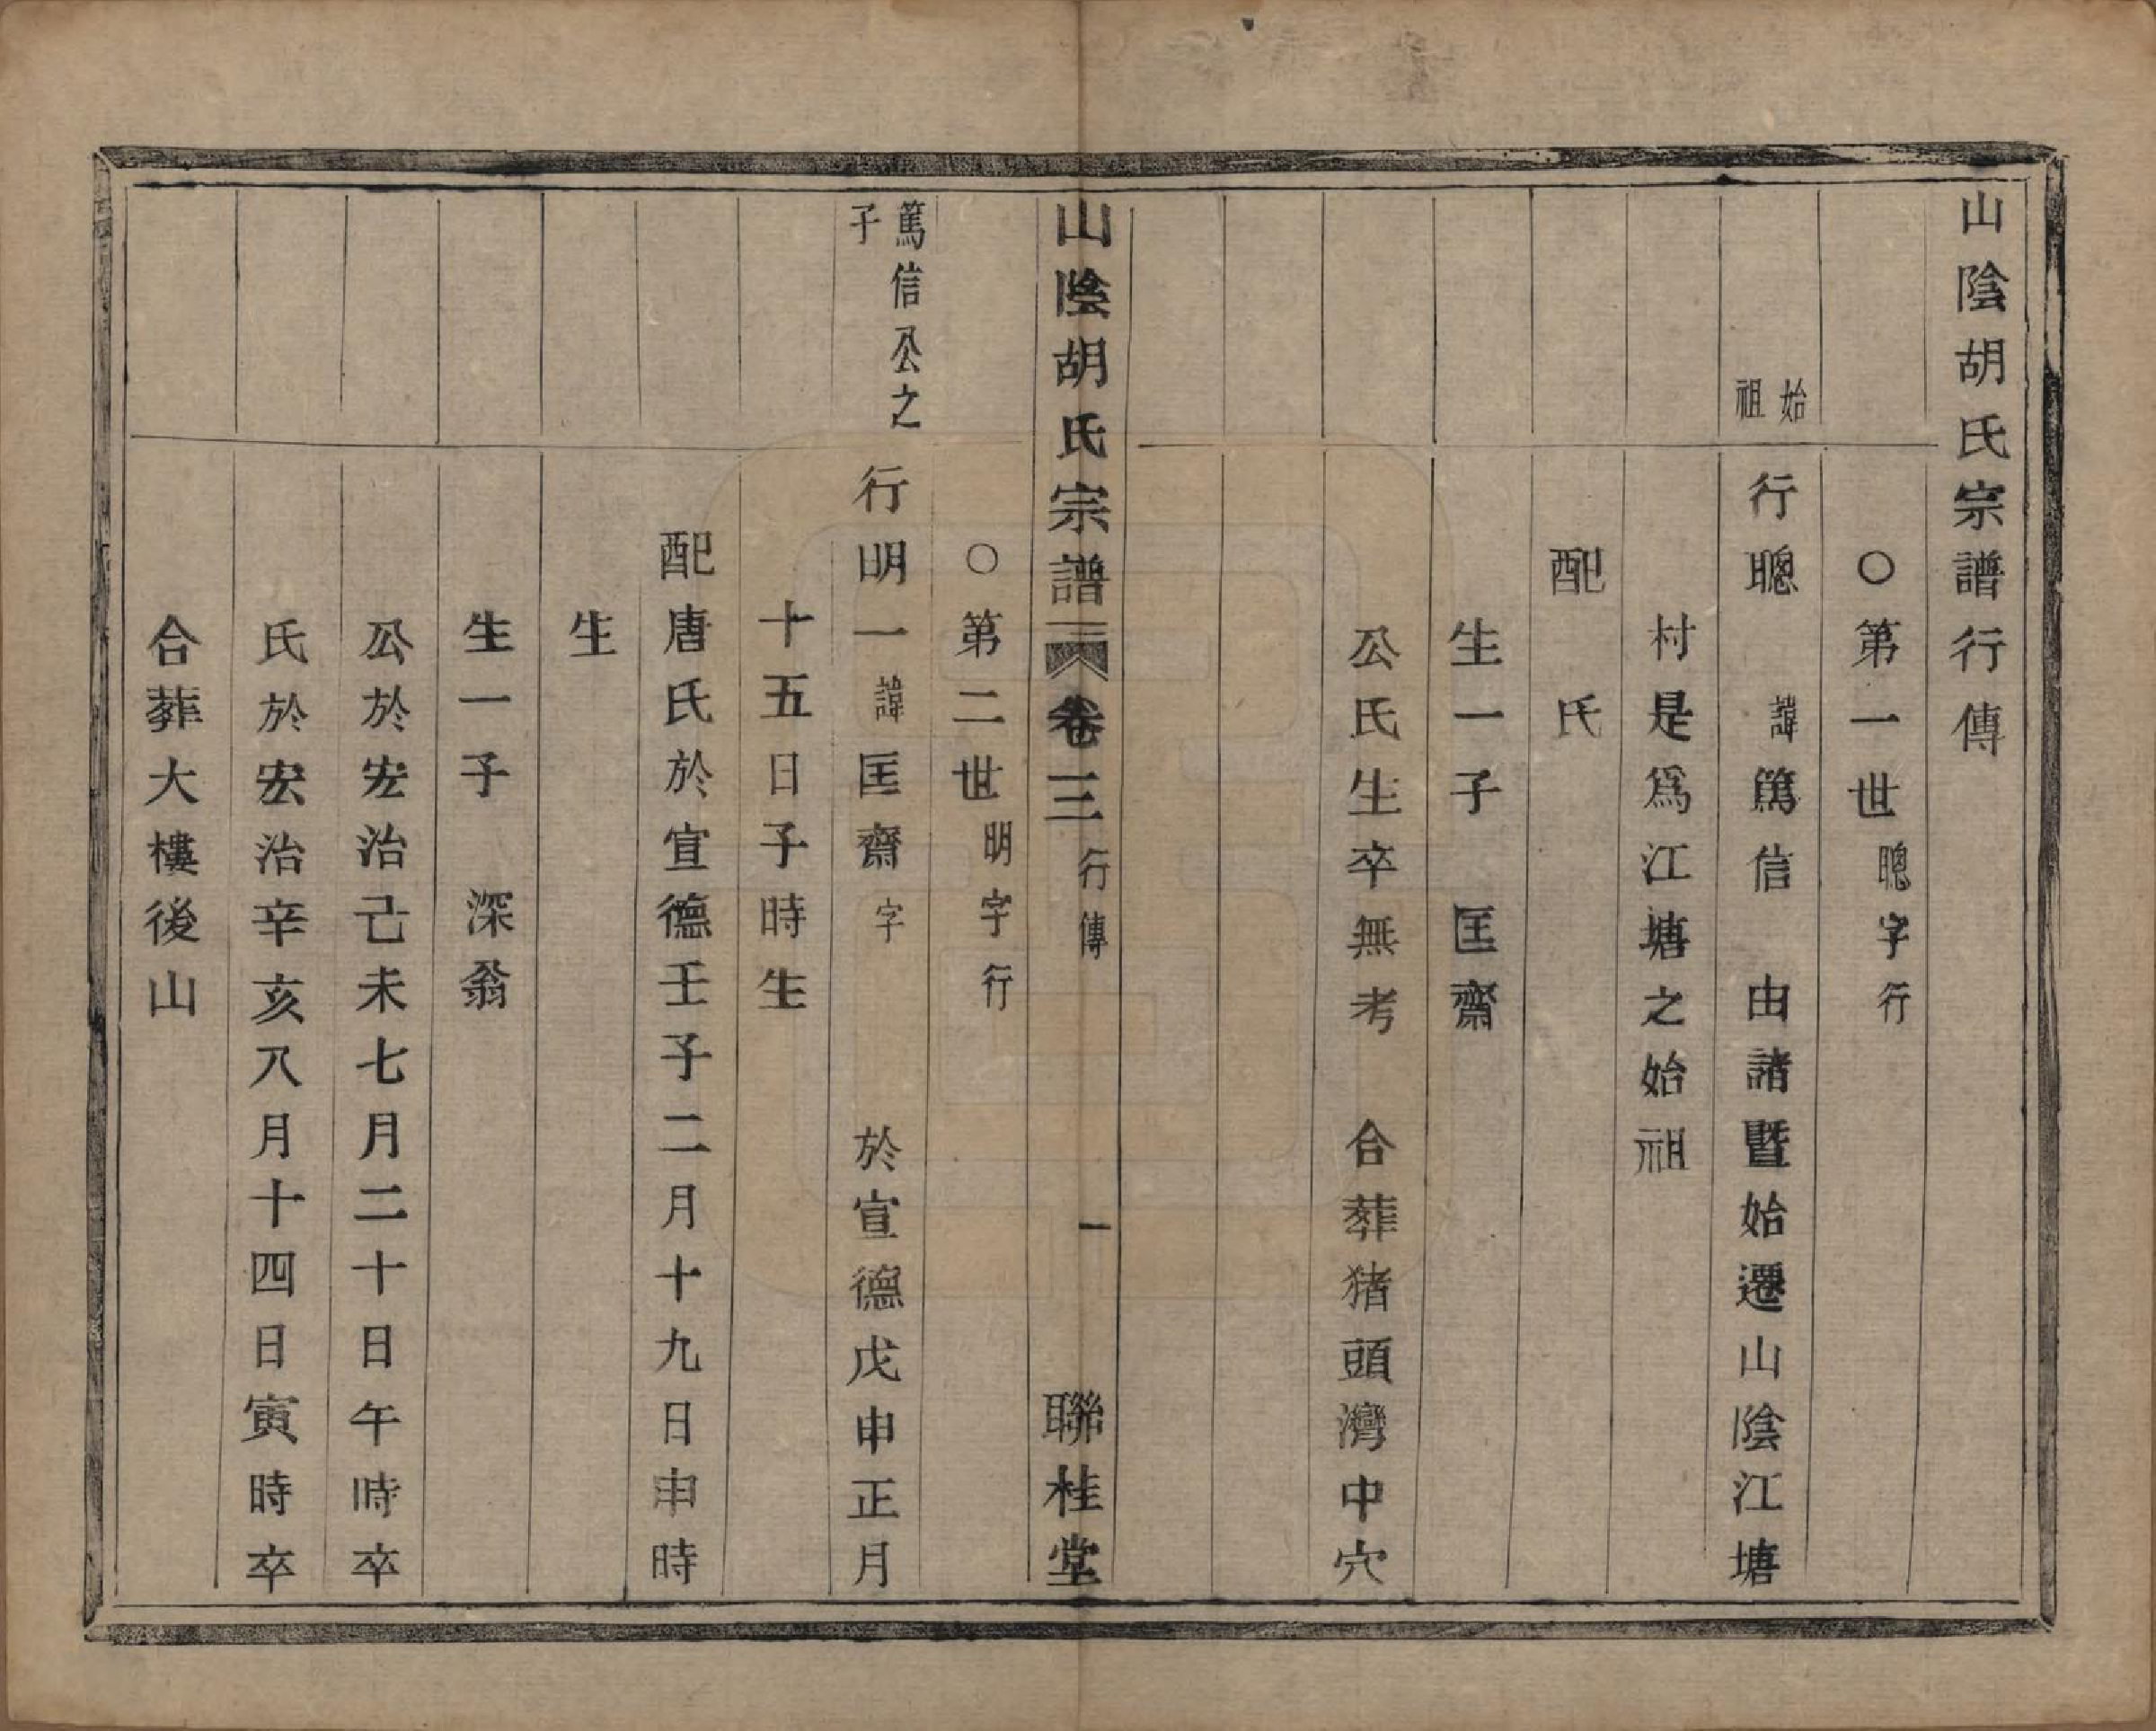 山陰胡氏宗譜行傳
○第一世聰字行
始祖
行聰 諱篤信 由諸暨始遷山陰江塘
村是爲江塘之始祖
配 氏
生一子 匡齋
公氏生卒無考 合葬猪頭灣中穴
山陰胡氏宗譜 卷三 行傳 一 聯桂堂
○第二世明字行
篤信公之子
行明一諱匡齋字 於宣德戊申正月
十五日子時生
配唐氏於宣德壬子二月十九日申時
生
生一子 深翁
公於宏治己未七月二十日午時卒
氏於宏治辛亥八月十四日寅時卒
合葬大樓後山